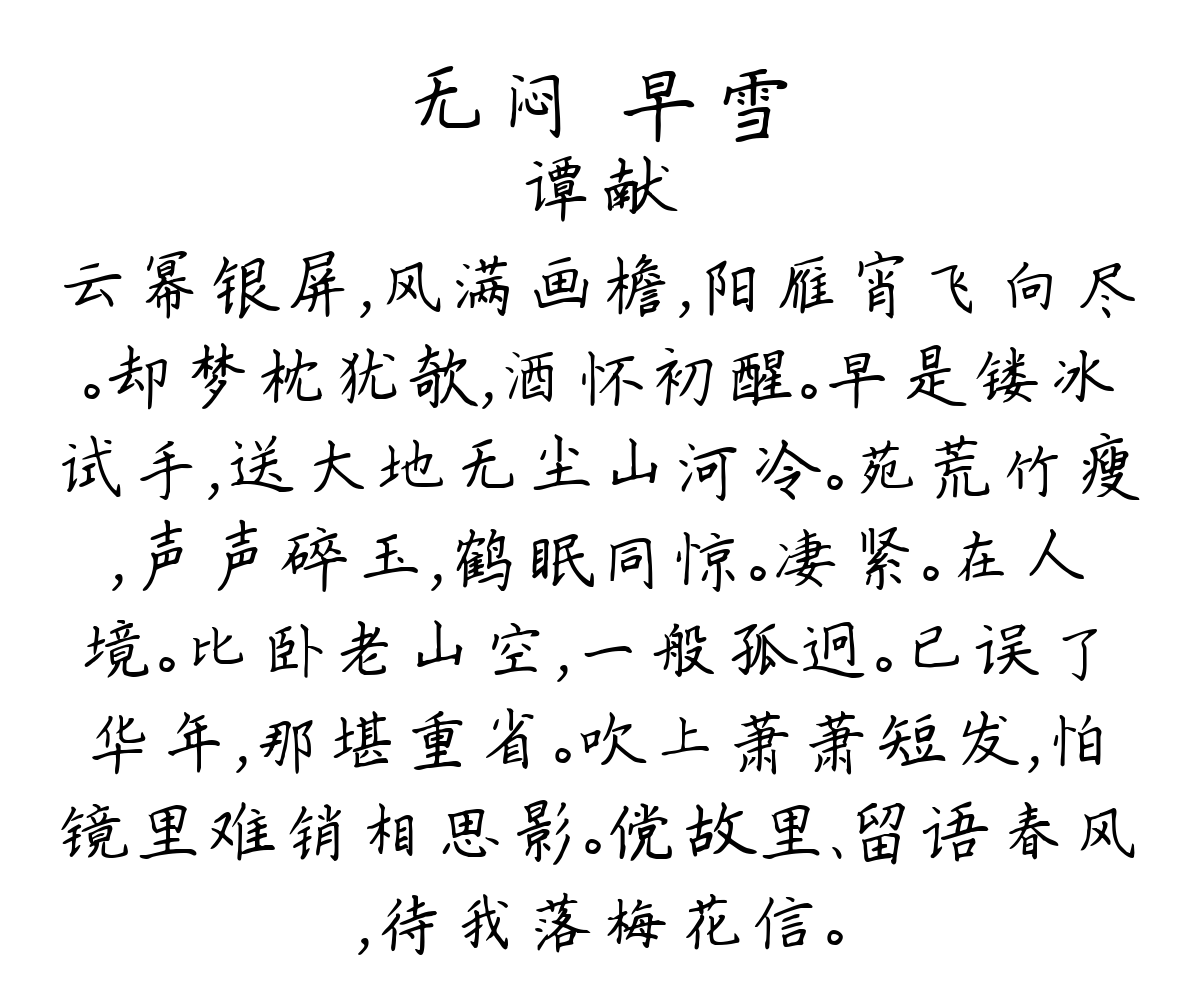 无闷 早雪
谭献
云幂银屏,风满画檐,阳雁宵飞向尽
。却梦枕犹欹,酒怀初醒。早是镂冰
试手,送大地无尘山河冷。苑荒竹瘦
,声声碎玉,鹤眠同惊。凄紧。在人
境。比卧老山空,一般孤迥。已误了
华年,那堪重省。吹上萧萧短发,怕
镜里难销相思影。傥故里、留语春风
,待我落梅花信。